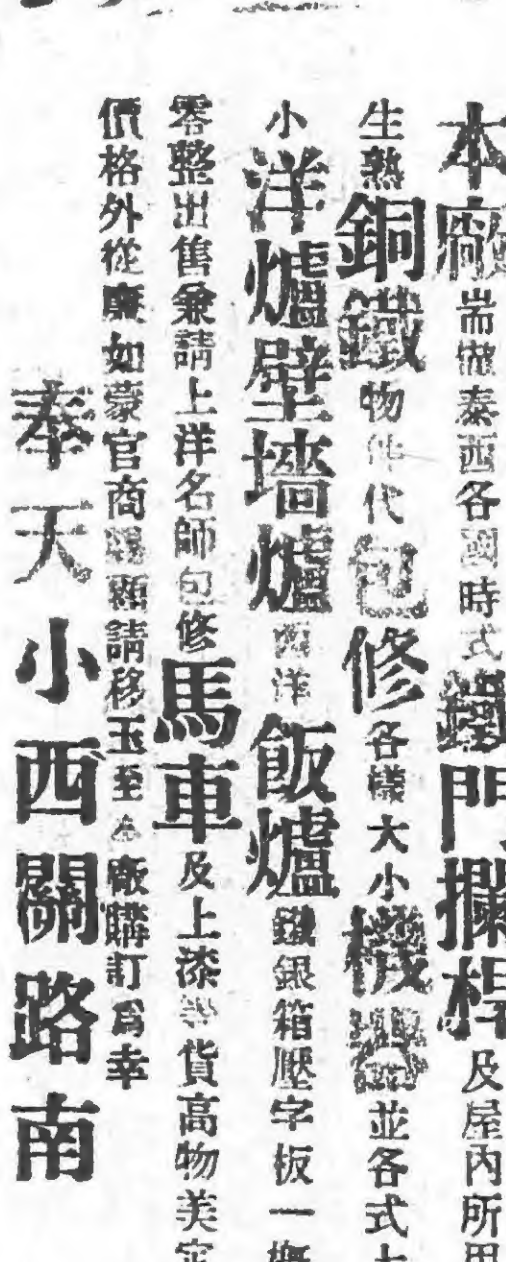 本廠耑做泰西各國時式鐵門攔桿及屋內所用
生熟銅鐵物件代包修各樣大小機器並各式大
小洋爐壁墻爐西洋飯爐鐵銀箱壓字板一概
零整出售兼請上洋名師包修馬車及上漆等貨高物美定
價格外從廉如蒙官商賜顧請移玉至本廠購訂爲幸
奉天小西關路南